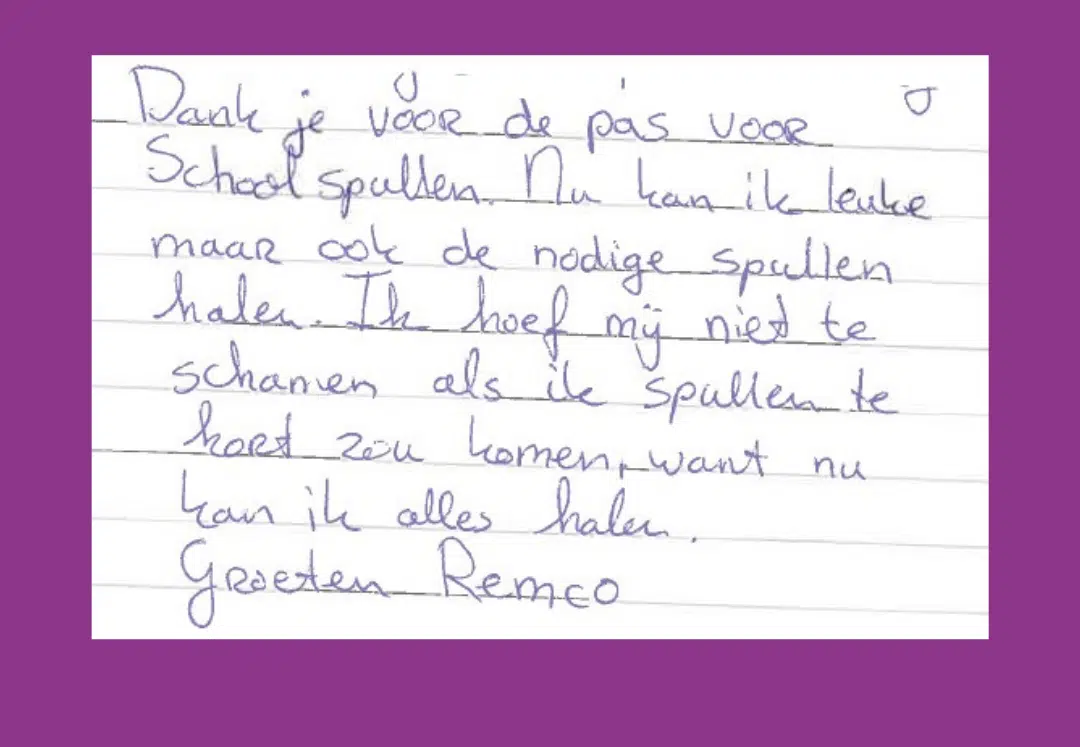 Dank je voor de pas voor
School spullen. Nu kan ik leuke
maar ook de nodige spullen
halen. Ik hoef mij niet te
schamen als ik spullen te
kort zou komen, want nu
kan ik alles halen.
Groeten Remco